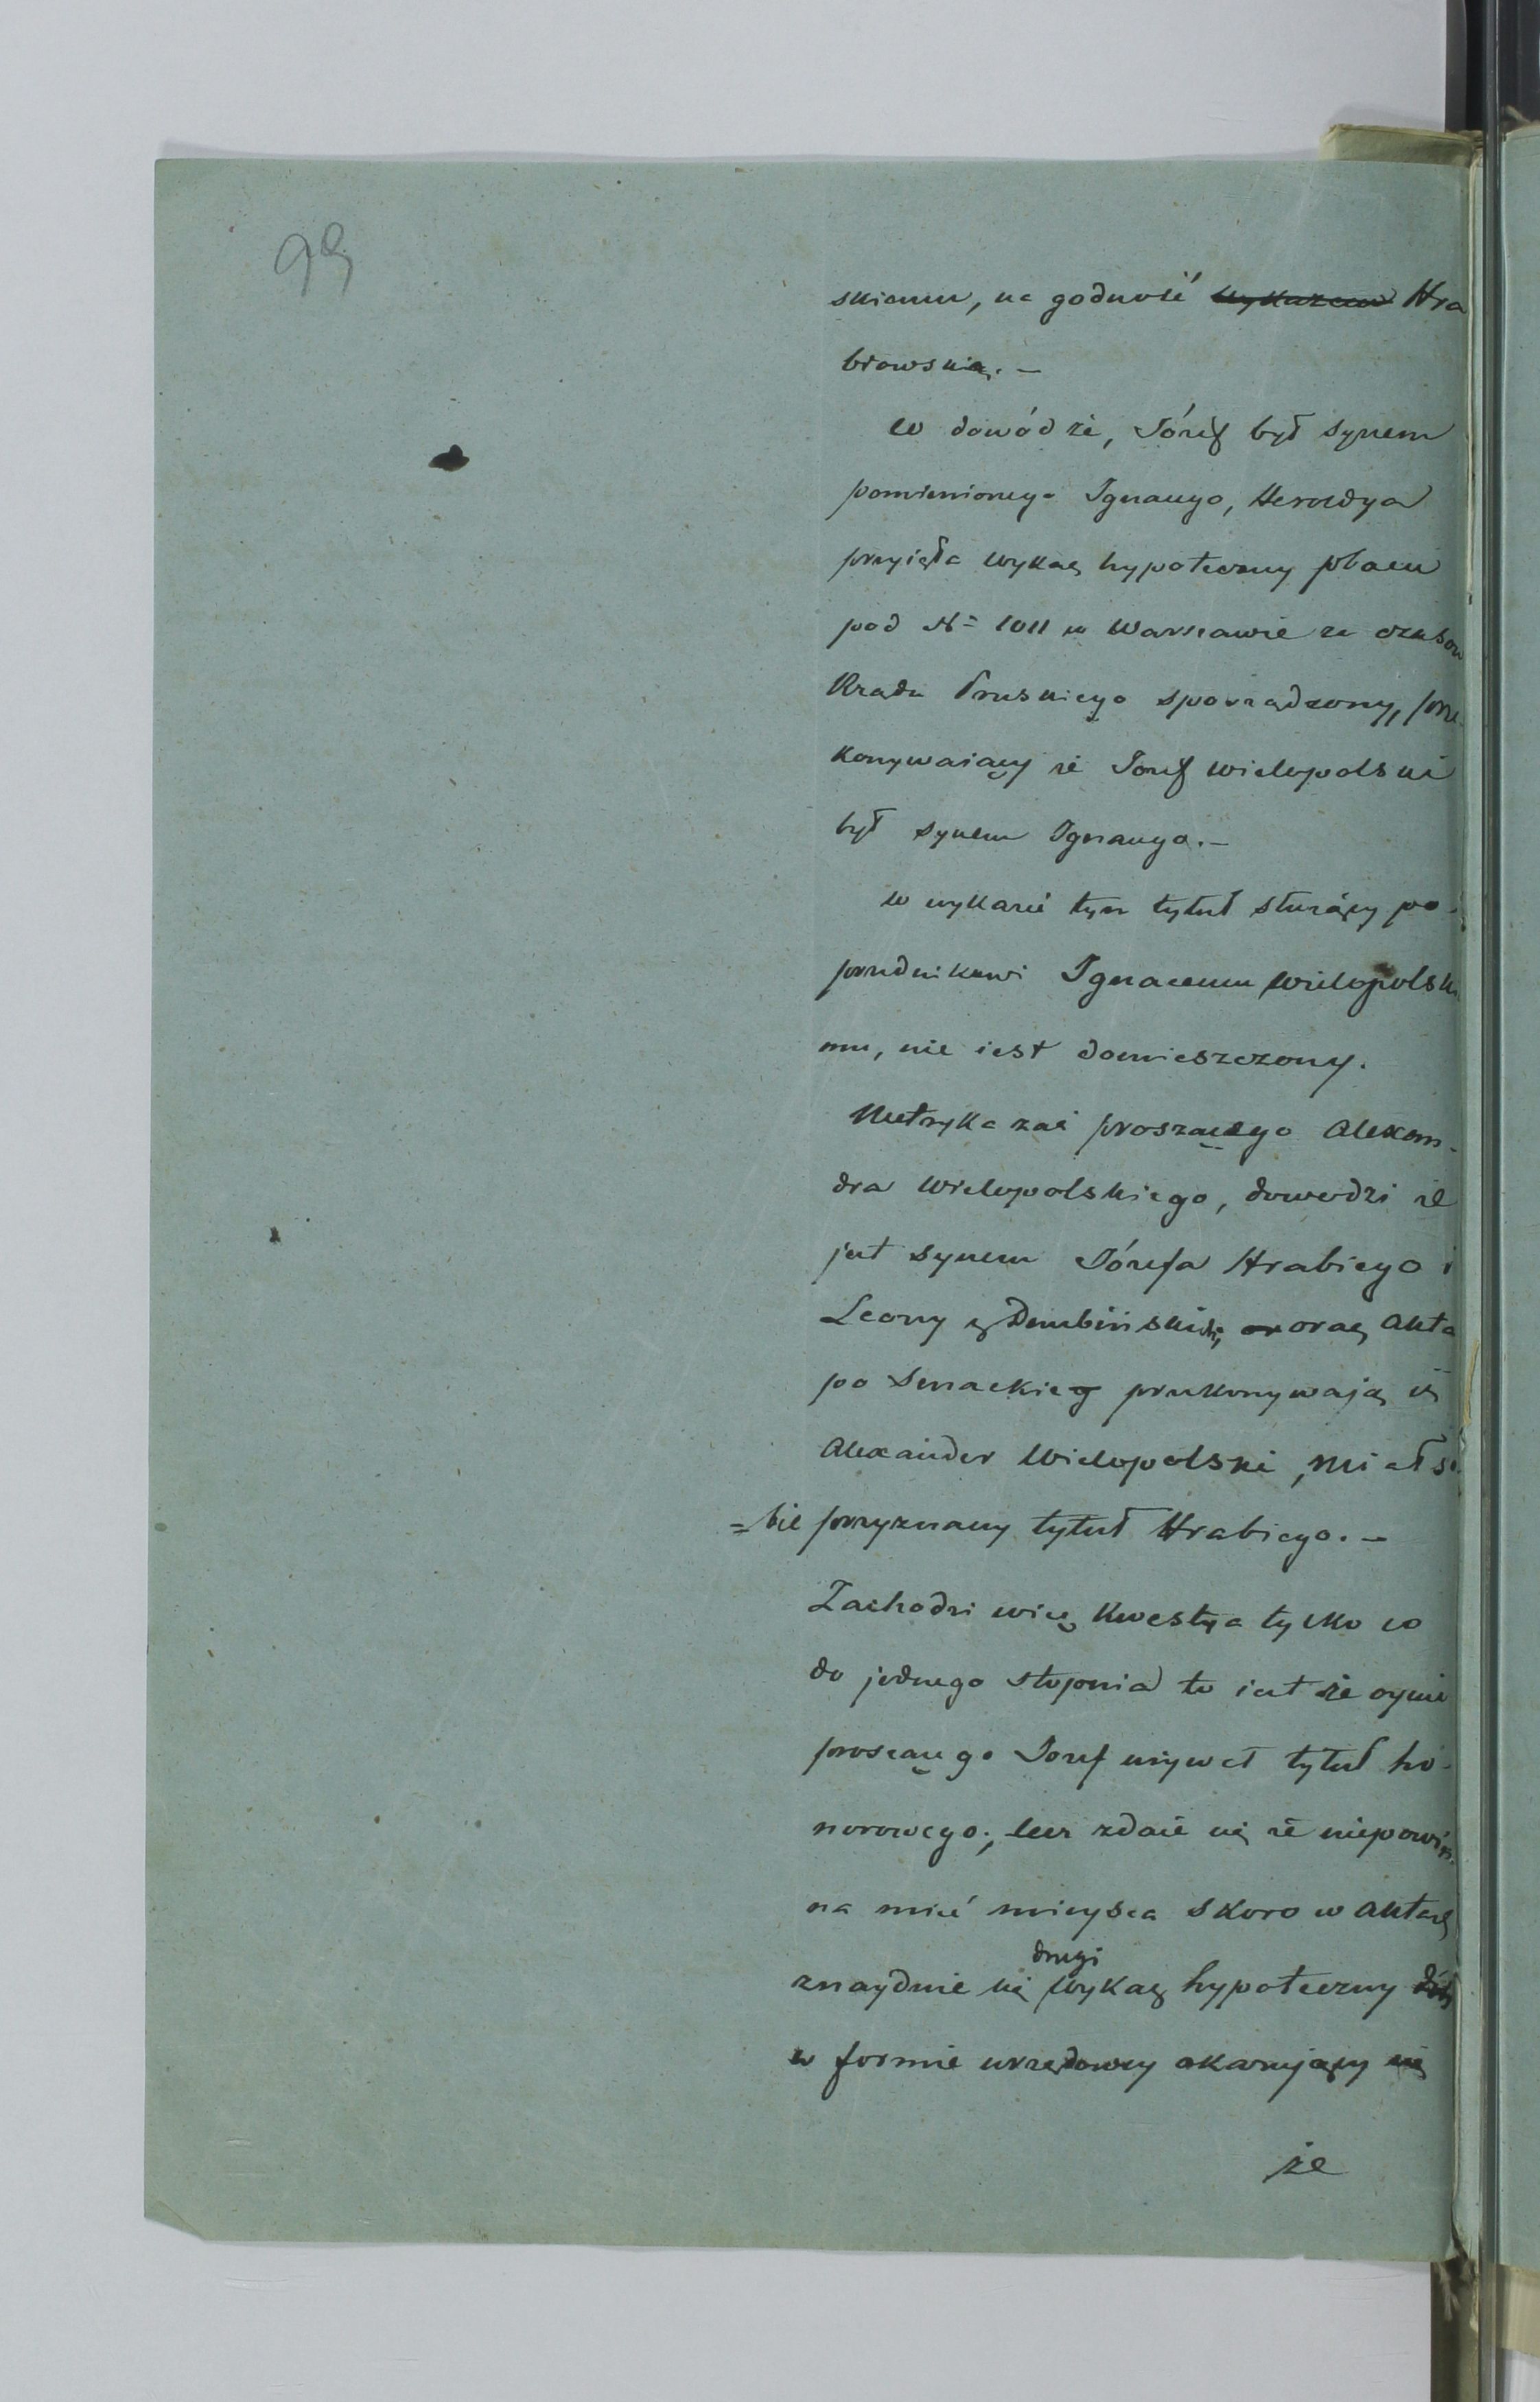 99
skiemu, na godność wykazem Hra
biowską. –
W dowód że, Józef był synem
pomienionego Ignacego, Heroldya
przyięła wykaz hypoteczny placu
pod № 1011 w Warszawie za czasów
Rządu Pruskiego sporządzony, prze-
konywaiący że Józef Wielopolski
był synem Ignacego. –
w wykazie tym tytuł służący po-
przednikowi Ignacemu Wielopolski
mu, nie iest domieszczony.
Metryka zaś proszącego Alexan-
dra Wielopolskiego, dowodzi że
jest synem Józefa Hrabiego i
Leony z Dembińskich, oraz Akta
po Senackie przekonywają iż
Alexander Wielopolski, miał so
=bie przyznany tytuł Hrabiego. –
Zachodzi więc kwestya tylko co
do jednego stopnia to iest że oyciec
proszącego Józef używał tytuł ho-
norowego; lecz zdaie się że niepowin-
na mieć mieysca skoro w Aktach
drugi
znayduie się wykaz hypoteczny
w formie urzędowey okazujący się
że